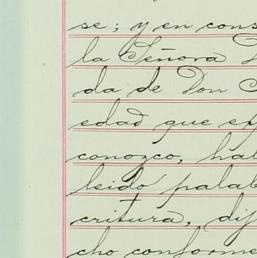 se; y en cons
la Señora D
da de Don C
edad que ex
conozco, hal
leido palab
critura, dij
cho conforme